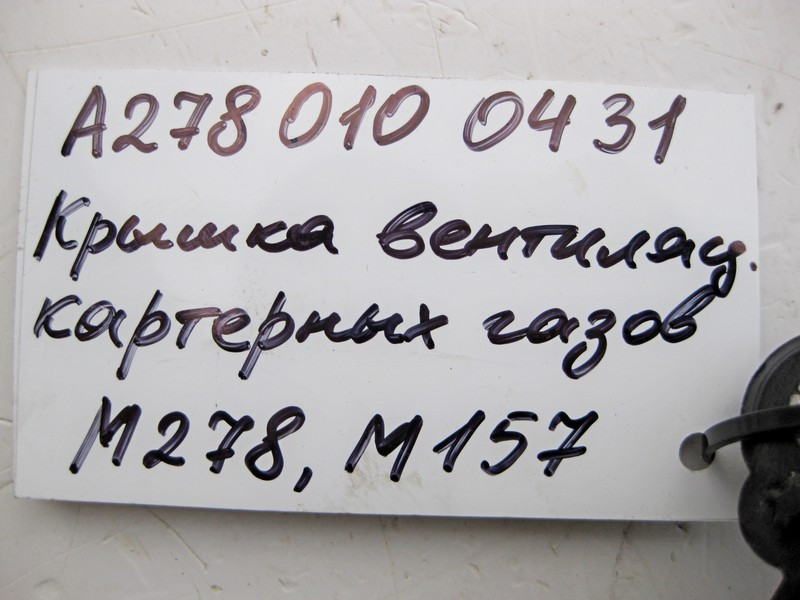 A278 010 0431
Крышка вентиляц.
картерных газов
М278, М157